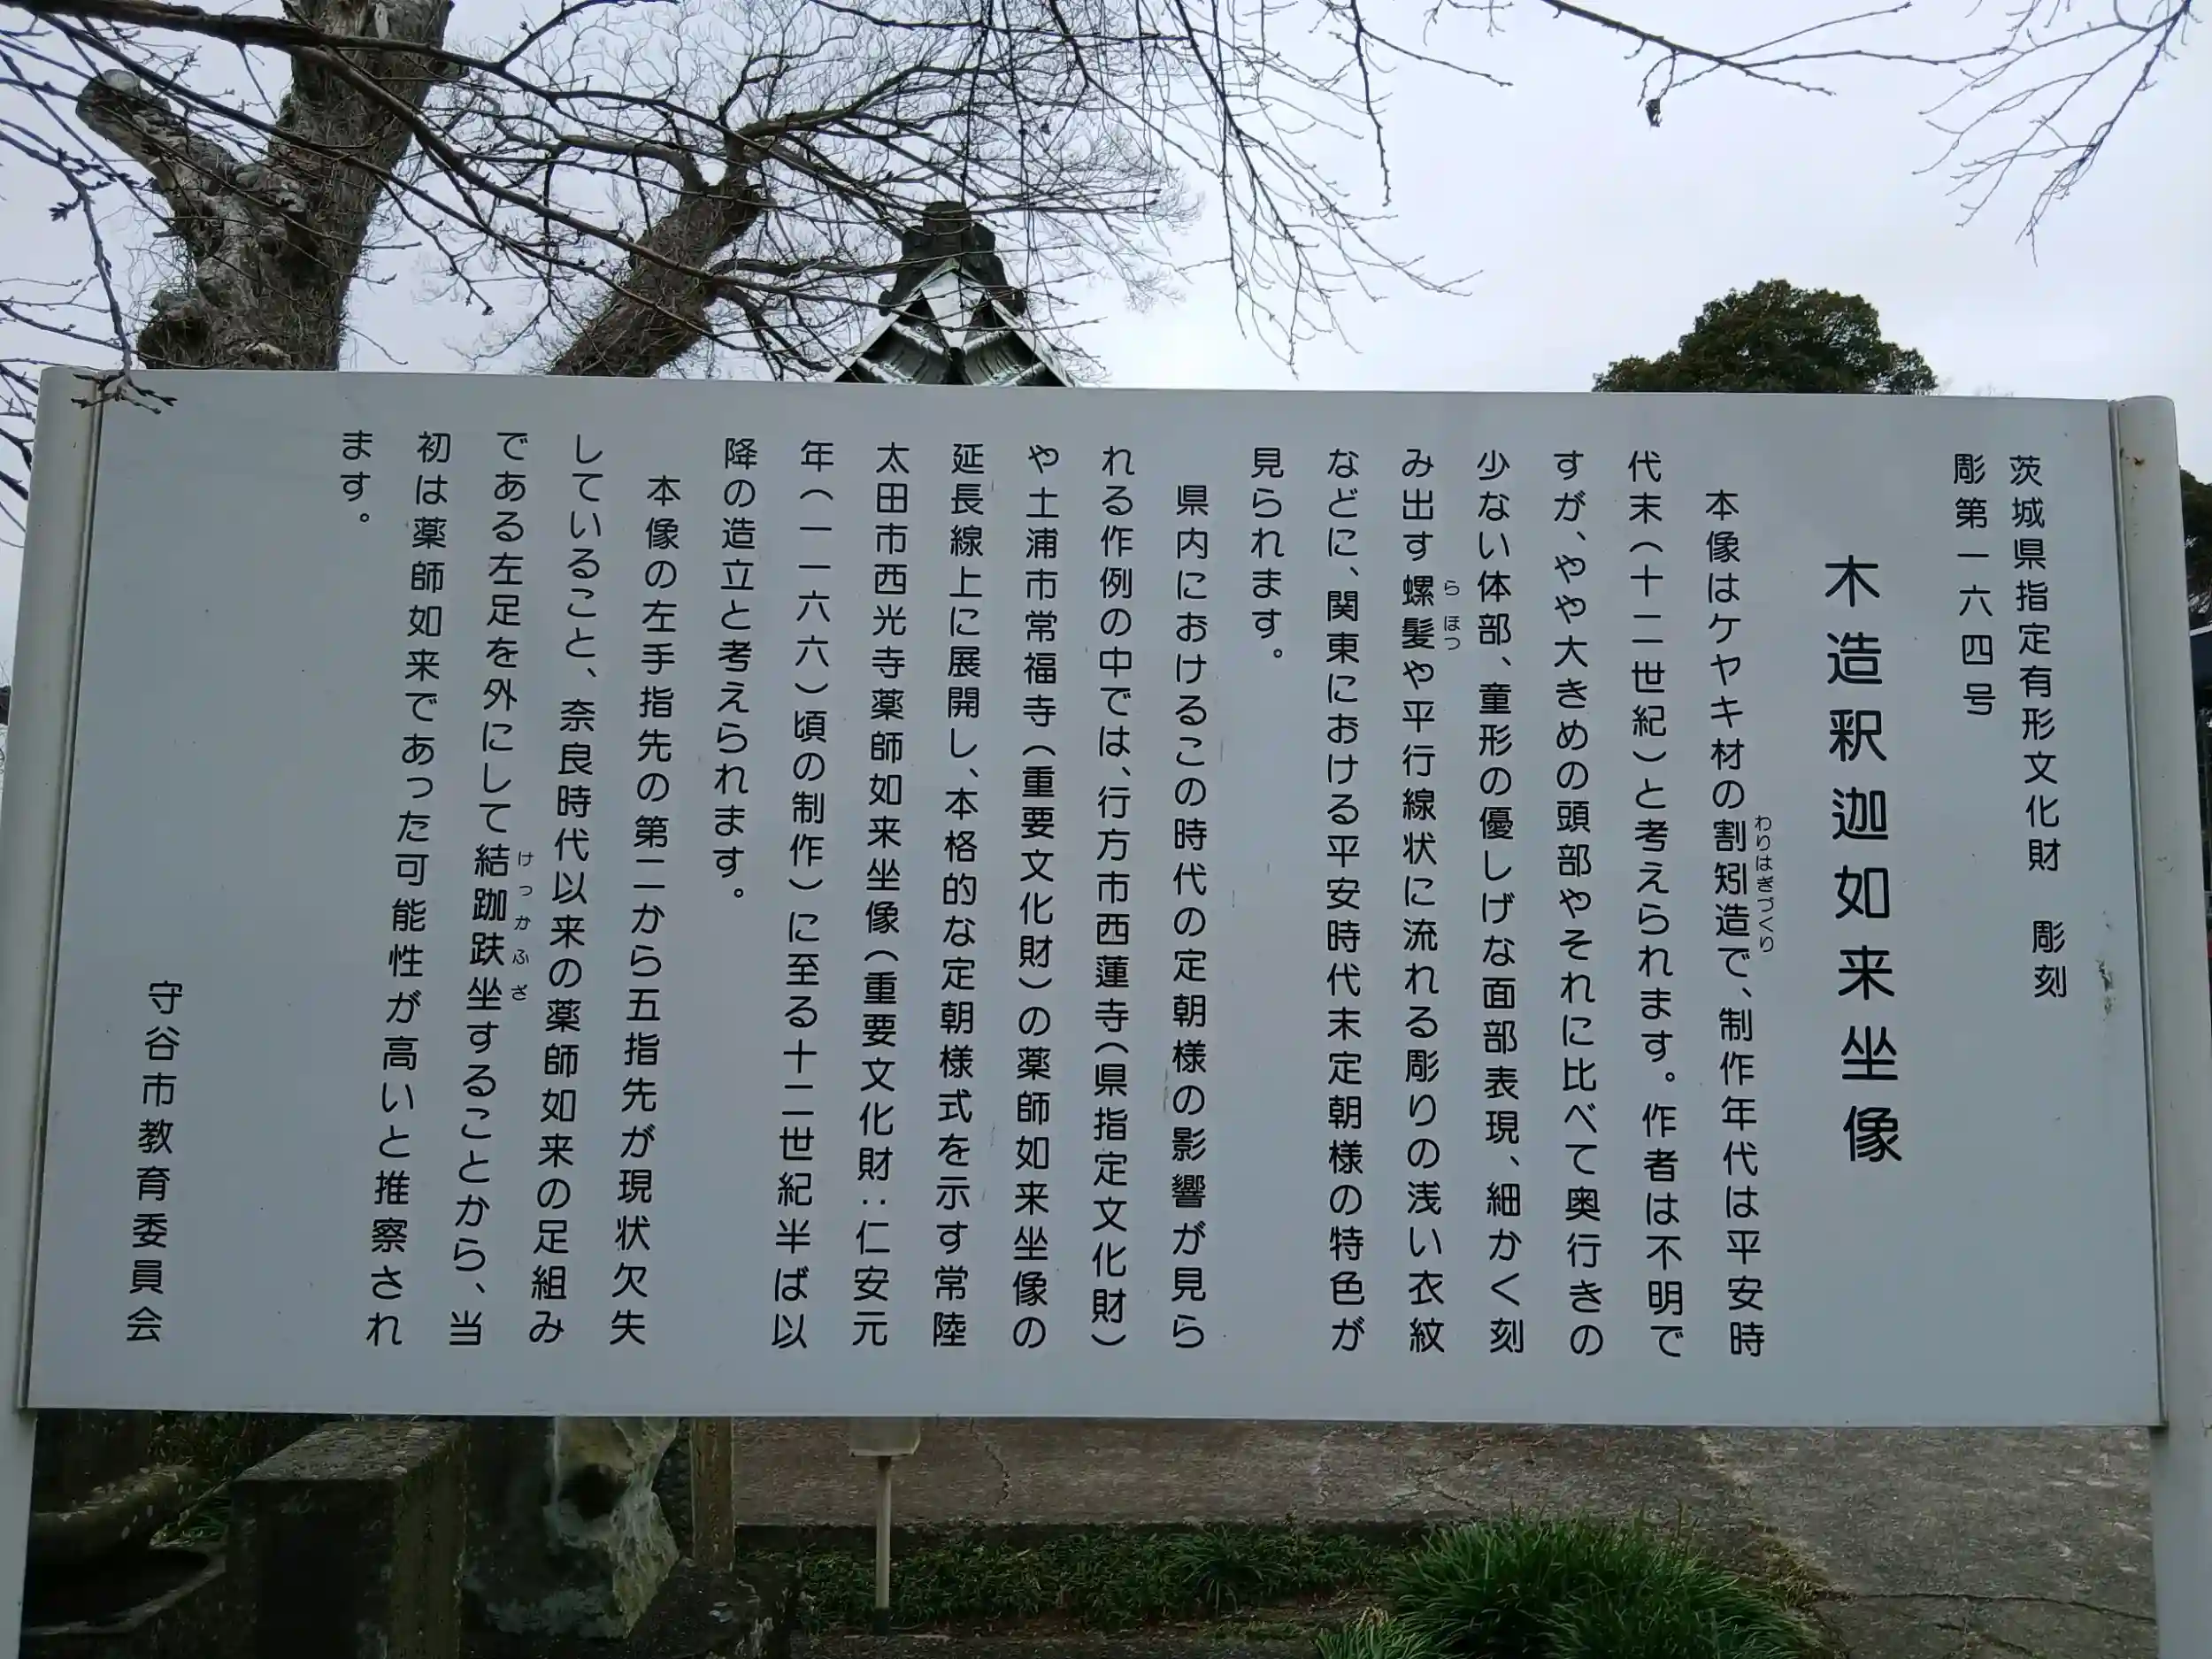 茨城県指定有形文化財　彫刻
彫第一六四号
木造釈迦如来坐像
本像はケヤキ材の割矧造で、制作年代は平安時
わりはぎづくり
代末（十二世紀）と考えられます。作者は不明で
すが、やや大きめの頭部やそれに比べて奥行きの
少ない体部、童形の優しげな面部表現、細かく刻
み出す螺髪や平行線状に流れる彫りの浅い衣紋
らほつ
などに、関東における平安時代末定朝様の特色が
見られます。
県内におけるこの時代の定朝様の影響が見ら
れる作例の中では、行方市西蓮寺（県指定文化財）
や土浦市常福寺（重要文化財）の薬師如来坐像の
延長線上に展開し、本格的な定朝様式を示す常陸
太田市西光寺薬師如来坐像（重要文化財：仁安元
年（一一六六）頃の制作）に至る十二世紀半ば以
降の造立と考えられます。
本像の左手指先の第二から五指先が現状欠失
していること、奈良時代以来の薬師如来の足組み
である左足を外にして結跏趺坐することから、当
けっかふざ
初は薬師如来であった可能性が高いと推察され
ます。
守谷市教育委員会